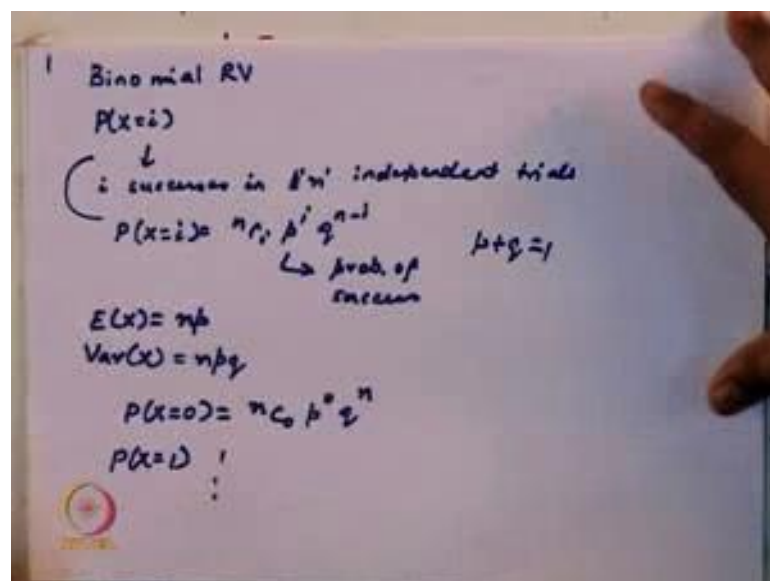 1 Binomial RV
P(x=i)
↓
i successes in 'n' independent trials
P(x=i) = ⁿCᵢ pⁱ qⁿ⁻ⁱ p+q=1
↳ prob. of
success
E(x) = np
Var(x) = npq
P(x=0) = ⁿC₀ p⁰ qⁿ
P(x=1) ⋮